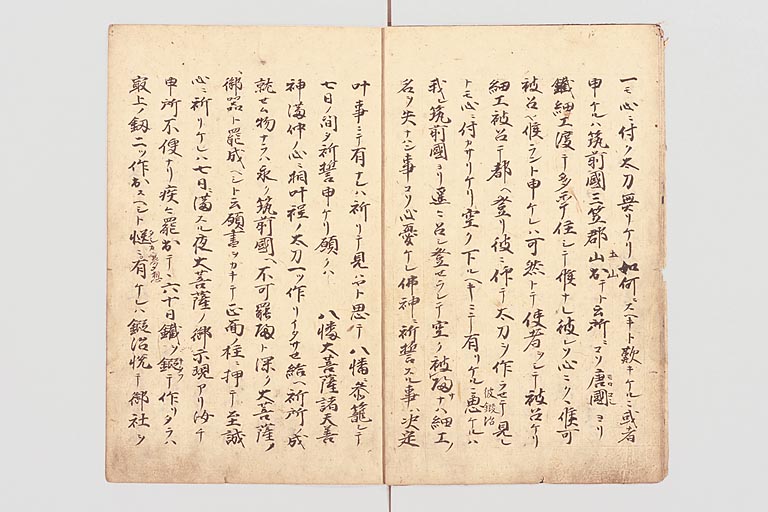 一モ心ニ付ク太刀無リケリ如何スヘキト歎キケルニ或者
申ケルハ筑前國三笠郡山出テト云所ニコソ唐國ヨリ
土山
モロコシ
鐵細工渡テ多年住シテ候ナレ被レソ心ニクヽ候可
被召ヤ候ラント申ケレハ可然トテ使者ヲシテ被召ケリ
細工被召テ都ヘ登リ彼ニ仰テ太刀ヲ作ラセテ見レ
トモ心ニ付カサリケリ空ク下ルヘキニテ有リケルニ愚ケルハ
彼鍛冶
我レ筑前國ヨリ遥ニ召シ登セラレテ空ク被歸ナハ細工ノ
名ヲ失ナハン事コソ心憂ケレ佛神ニ祈誓スル事ハ決定
叶事ニテ有ナレハ祈リテ見ハヤト思テ八幡ニ参籠シテ
七日ノ間タ祈誓申ケリ願クハ八幡大菩薩諸天善
神満仲ノ心ニ相叶程ノ太刀一ツ作リイタサセ給ヘ祈所ノ成
就セム物ナラハ永ク筑前國ヘ不可罷歸ト深ク大菩薩ノ
御器ト罷成ヘシト云願書ヲカキテ正面ノ柱ニ押テ至誠
心ニ祈リケレハ七日ニ満スル夜大菩薩ノ御示現アリ汝チ
申所不便ナリ疾ク罷出テヽ六十日鐵ヲ鍛テ作リタラハ
取上ノ釼二ツ作出スヘシト慥ニ有ケレハ鍛冶悦テ御社ヲ